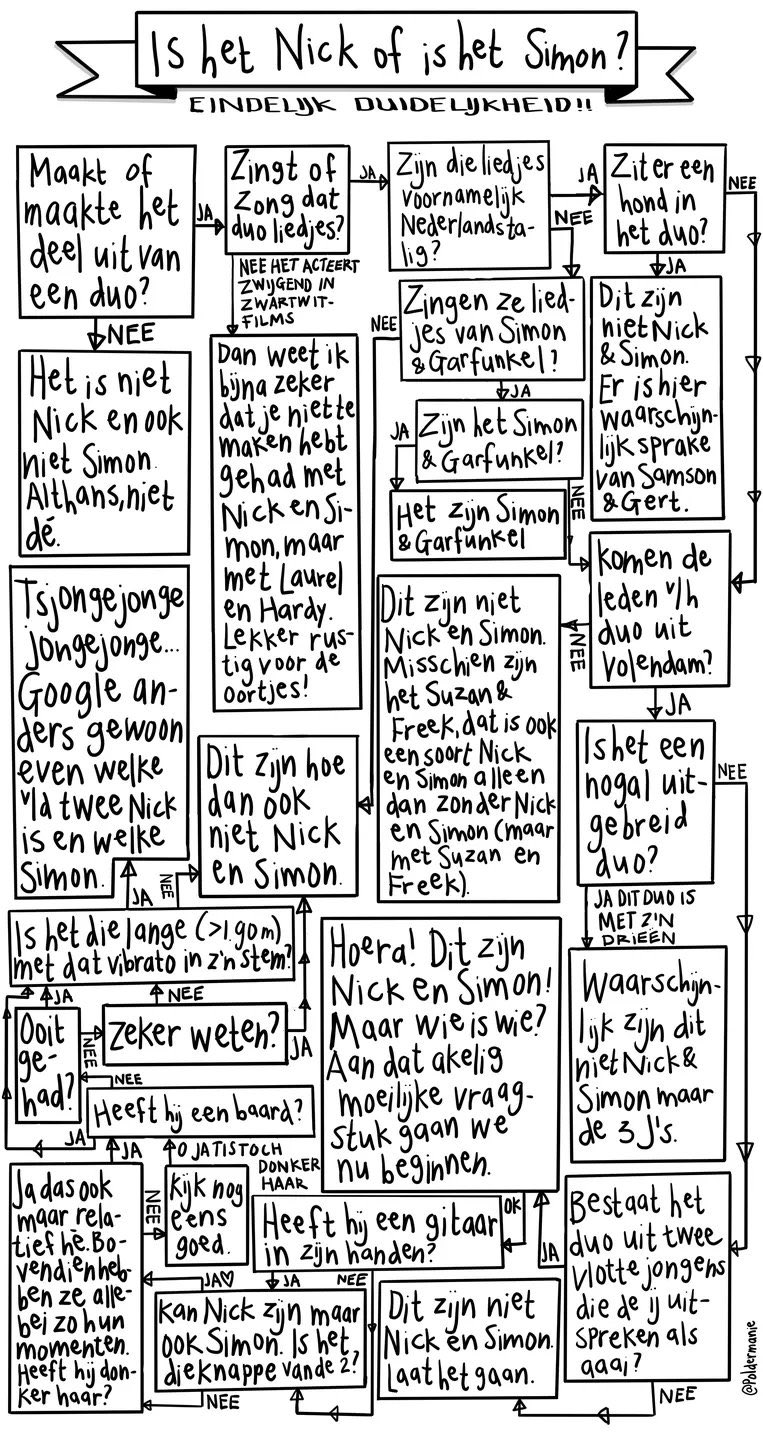 Is het Nick of is het Simon?
EINDELIJK DUIDELIJKHEID!!
Maakt of
maakte het
deel uit van
een duo?
JA
NEE
Het is niet
Nick en ook
niet Simon.
Althans, niet
dé.
Zingt of
zong dat
duo liedjes?
JA
NEE HET ACTEERT
ZWIJGEND IN
ZWARTWIT-
FILMS
Dan weet ik
bijna zeker
dat je niet te
maken hebt
gehad met
Nick en Si-
mon, maar
met Laurel
en Hardy.
Lekker rus-
tig voor de
oortjes!
Zijn die liedjes
voornamelijk
Nederlandsta-
lig?
JA
NEE
Zit er een
hond in
het duo?
NEE
JA
Dit zijn
niet Nick
& Simon.
Er is hier
waarschijn-
lijk sprake
van Samson
& Gert.
Zingen ze lied-
jes van Simon
& Garfunkel?
NEE
JA
Zijn het Simon
& Garfunkel?
JA
NEE
Het zijn Simon
& Garfunkel
Komen de
leden v/h
duo uit
Volendam?
NEE
JA
Dit zijn niet
Nick en Simon.
Misschien zijn
het Suzan &
Freek, dat is ook
een soort Nick
en Simon alleen
dan zonder Nick
en Simon (maar
met Suzan en
Freek).
Is het een
nogal uit-
gebreid
duo?
NEE
JA DIT DUO IS
MET Z'N
DRIEËN
Waarschijn-
lijk zijn dit
niet Nick &
Simon maar
de 3 J's.
Bestaat het
duo uit twee
vlotte jongens
die de ij uit-
spreken als
aaai?
JA
NEE
Dit zijn niet
Nick en Simon.
Laat het gaan.
Hoera! Dit zijn
Nick en Simon!
Maar wie is wie?
Aan dat akelig
moeilijke vraag-
stuk gaan we
nu beginnen.
OK
Heeft hij een gitaar
in zijn handen?
JA
NEE
Kan Nick zijn maar
ook Simon. Is het
die knappe van de 2?
JA♡
NEE
Ja das ook
maar rela-
tief hè. Bo-
vendien heb-
ben ze alle-
bei zo hun
momenten.
Heeft hij don-
ker haar?
JA
NEE
Kijk nog
eens
goed.
O JA TIS TOCH
DONKER
HAAR
Heeft hij een baard?
JA
NEE
Ooit
ge-
had?
JA
NEE
Zeker weten?
NEE
JA
Is het die lange (>1.90m)
met dat vibrato in z'n stem?
JA
NEE
Tsjongejonge
jongejonge...
Google an-
ders gewoon
even welke
v/d twee Nick
is en welke
Simon.
Dit zijn hoe
dan ook
niet Nick
en Simon.
@Poldermanie